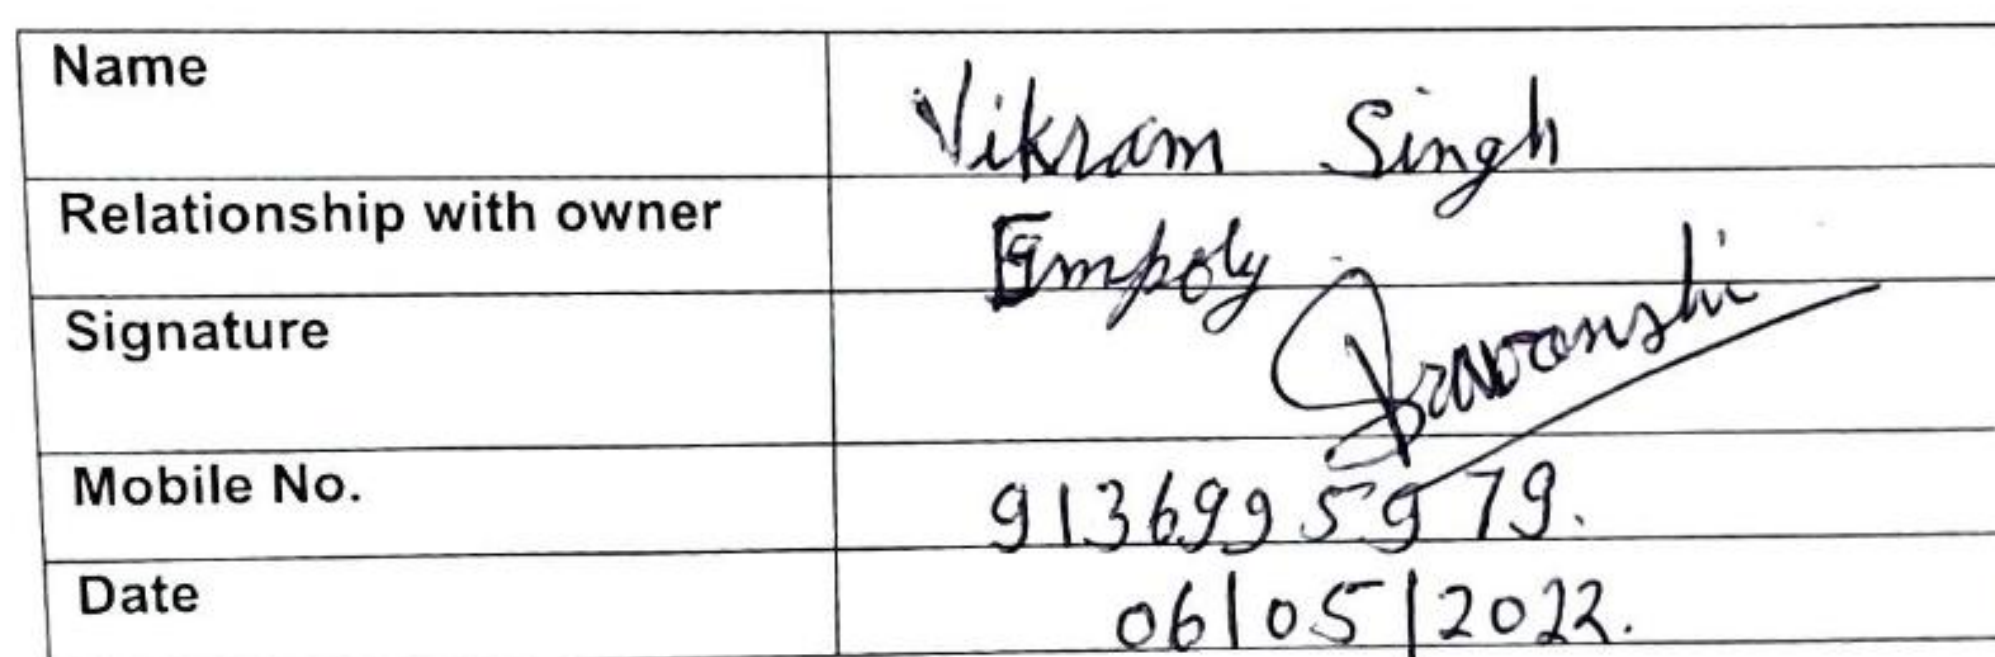 Name Vikram Singh
Relationship with owner Empoly
Signature
Mobile No. 9136995979.
Date 06/05/2022.